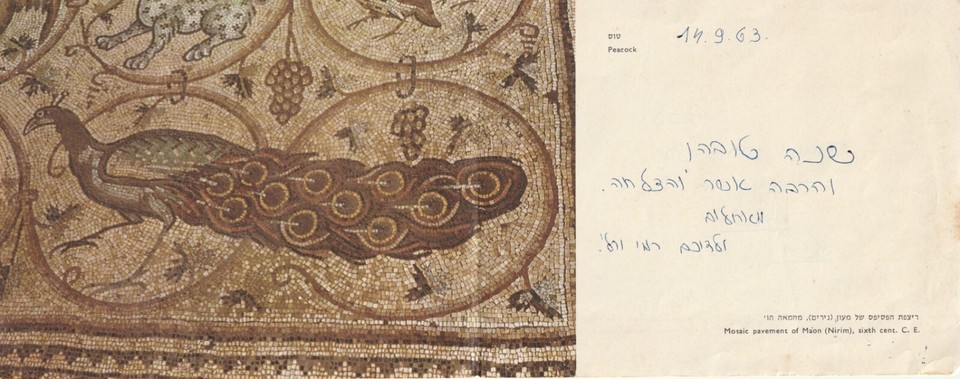 טוס
Peacock
14.9.63.
שנה טובה
והרבה אושר והצלחה.
מאחלים
ילדיכם רמי
ריצפת הפסיפס של מעון (נירים), מהמאה הו׳
Mosaic pavement of Ma'on (Nirim), sixth cent. C. E.